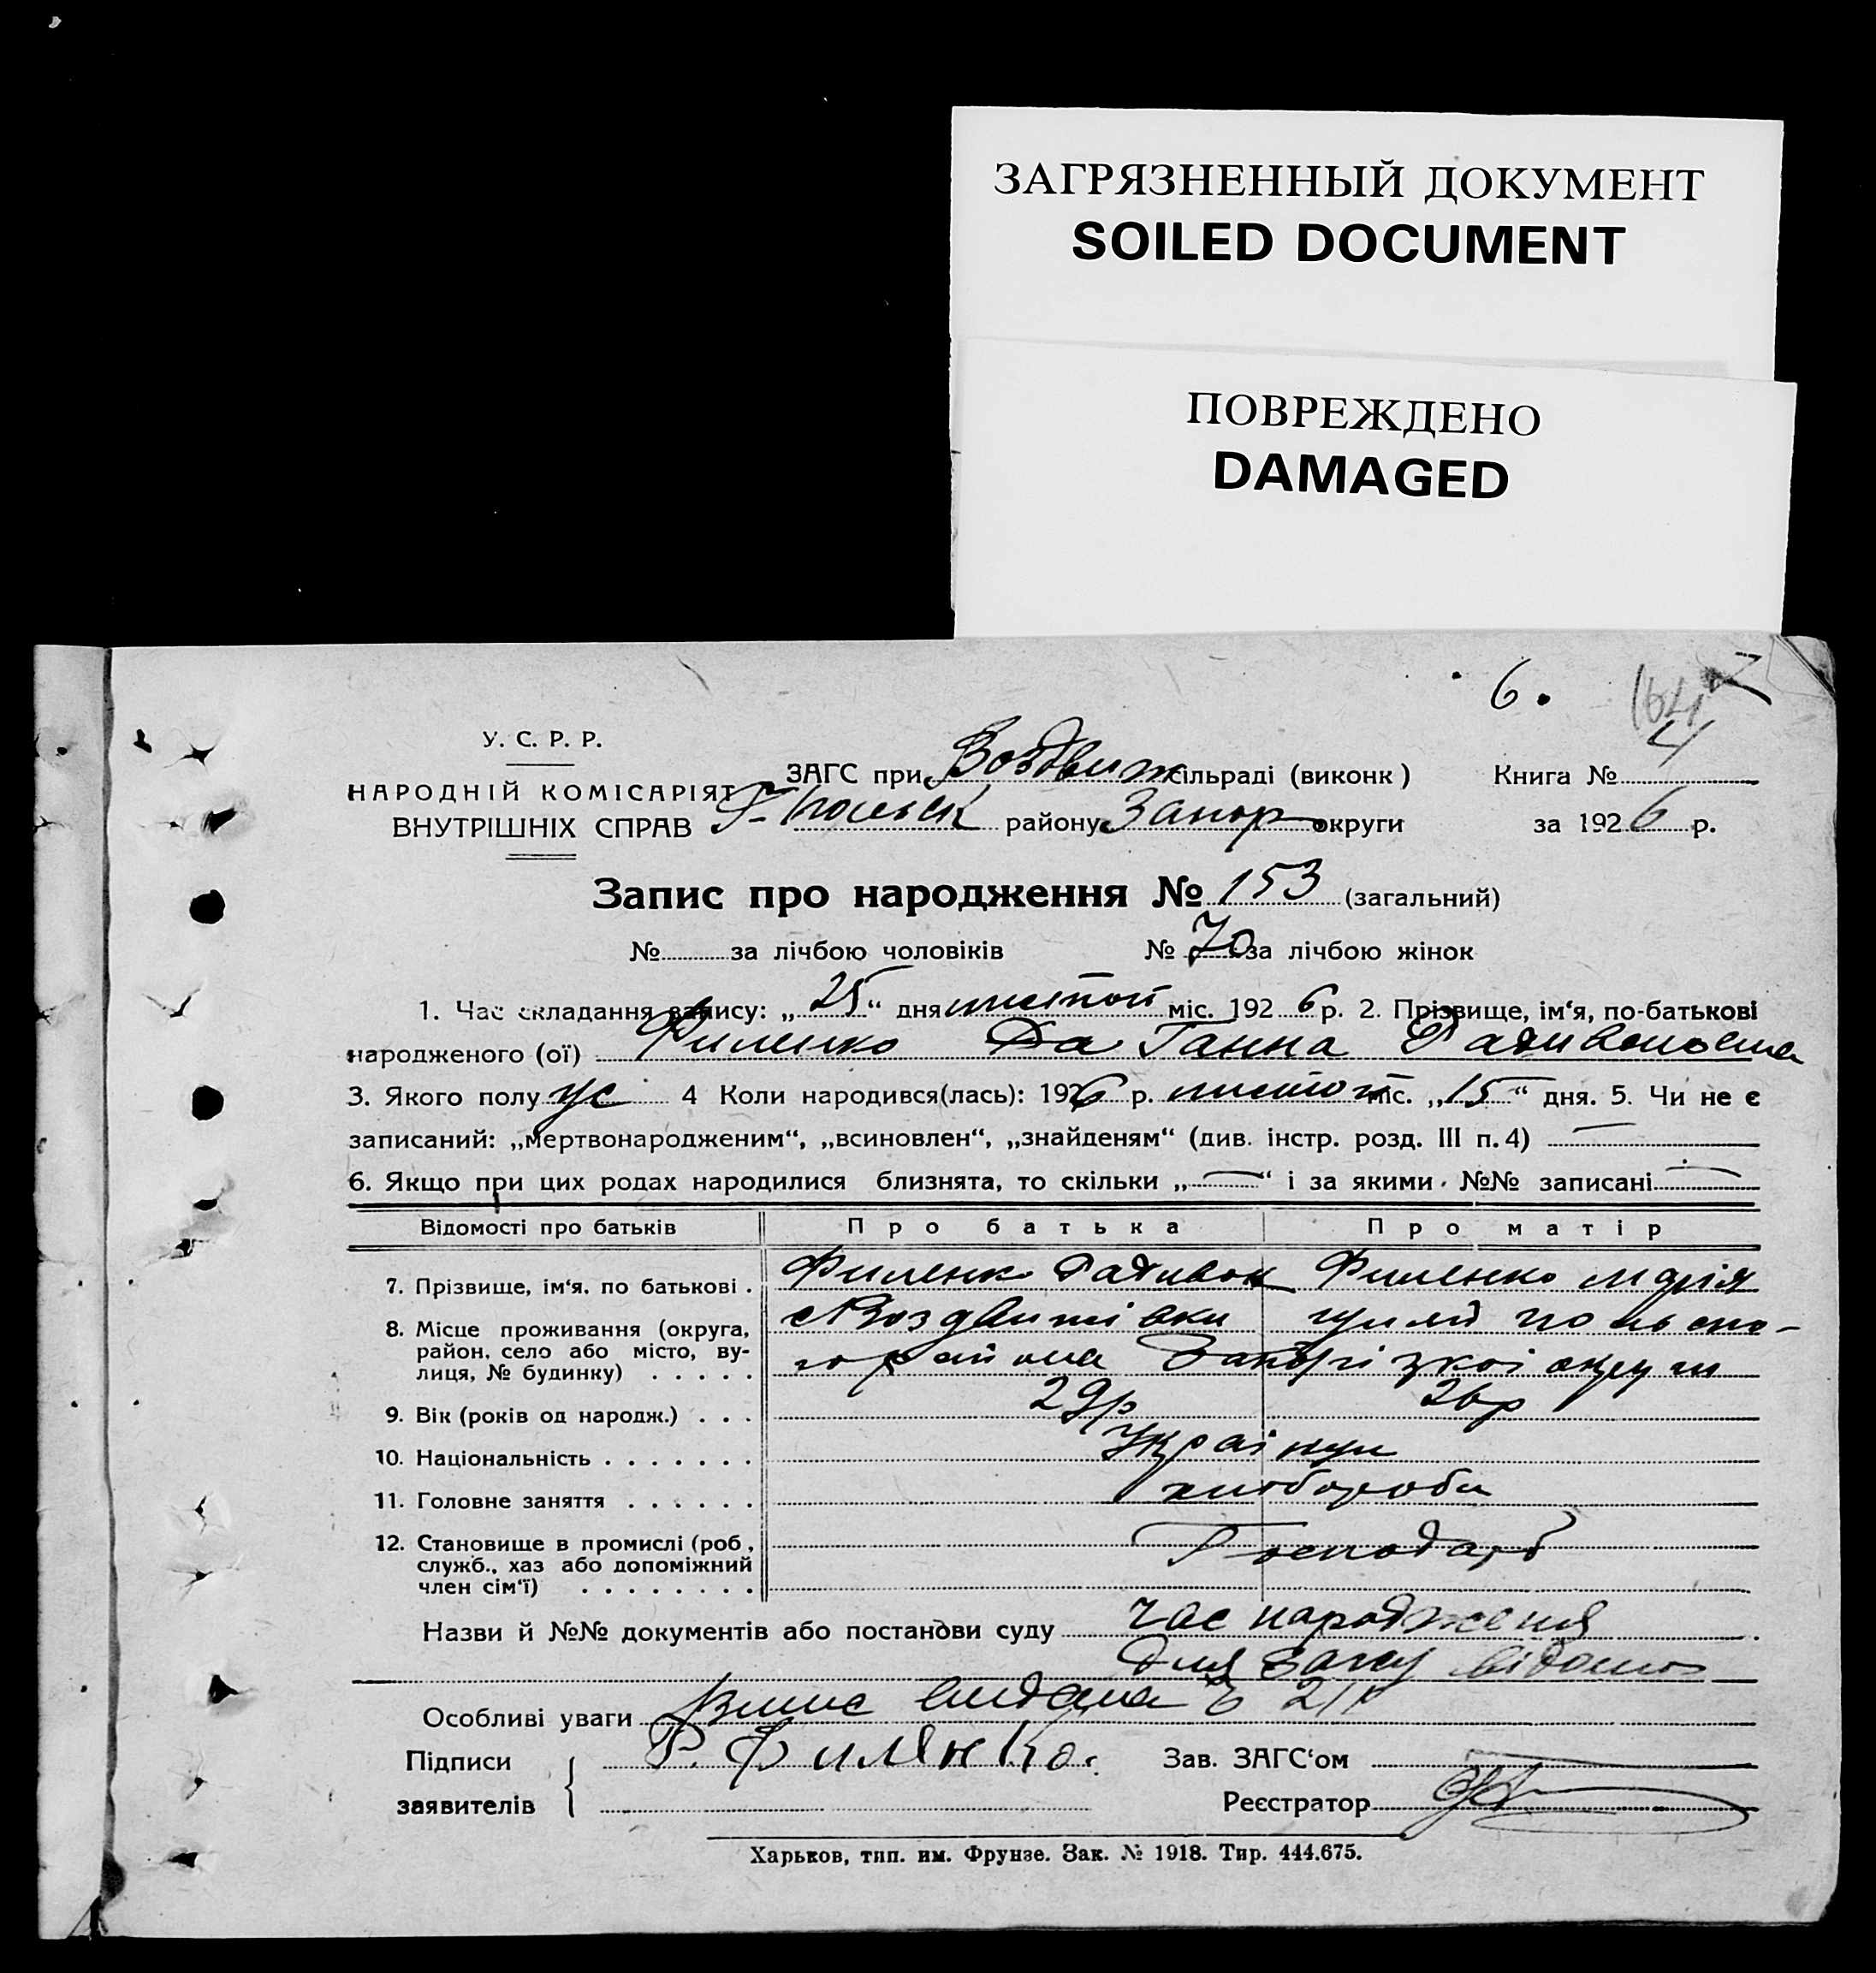 ЗАГРЯЗНЕННЫЙ ДОКУМЕНТ
SOILED DOCUMENT
ПОВРЕЖДЕНО
DAMAGED
6.
164
У. С. Р. Р.
НАРОДНІЙ КОМІСАРІЯТ
ВНУТРІШНІХ СПРАВ
ЗАГС при Воздвиж сільраді (виконк) Книга № 4
району Запор округи за 1926 р.
Запис про народження № 153 (загальний)
№ за лічбою чоловіків № 70 за лічбою жінок
1. Час складання запису: „25“ дня листоп міс. 1926 р. 2. Прізвище, ім‘я, по-батькові
народженого (ої) Филенко Ганна
3. Якого полу 4 Коли народився(лась): 1926 р. листоп міс. „15“ дня. 5. Чи не є
записаний: „мертвонародженим“, „всиновлен“, „знайденям“ (див. інстр. розд. III п. 4) —
6. Якщо при цих родах народилися близнята, то скільки „—“ і за якими №№ записані —
Відомості про батьків Про батька Про матір
7. Прізвище, ім‘я, по батькові . Филенко Радивон Филенко Марія
8. Місце проживання (округа, район, село або місто, вулиця, № будинку) . . . . . с Воздвижівки
району Запорізкої округи
9. Вік (років од народж.) . . . 29р 26р
10. Національність . . . . . . . Українци
11. Головне заняття . . . . . . хлібороби
12. Становище в промислі (роб, служб., хаз або допоміжний член сім‘ї) . . . . . . . . Господарі
Назви й №№ документів або постанови суду час народженя
для загсу відомо
Особливі уваги видана
Підписи Р. Филянко. Зав. ЗАГС‘ом
заявителів Реєстратор
Харьков, тип. им. Фрунзе. Зак. № 1918. Тир. 444.675.